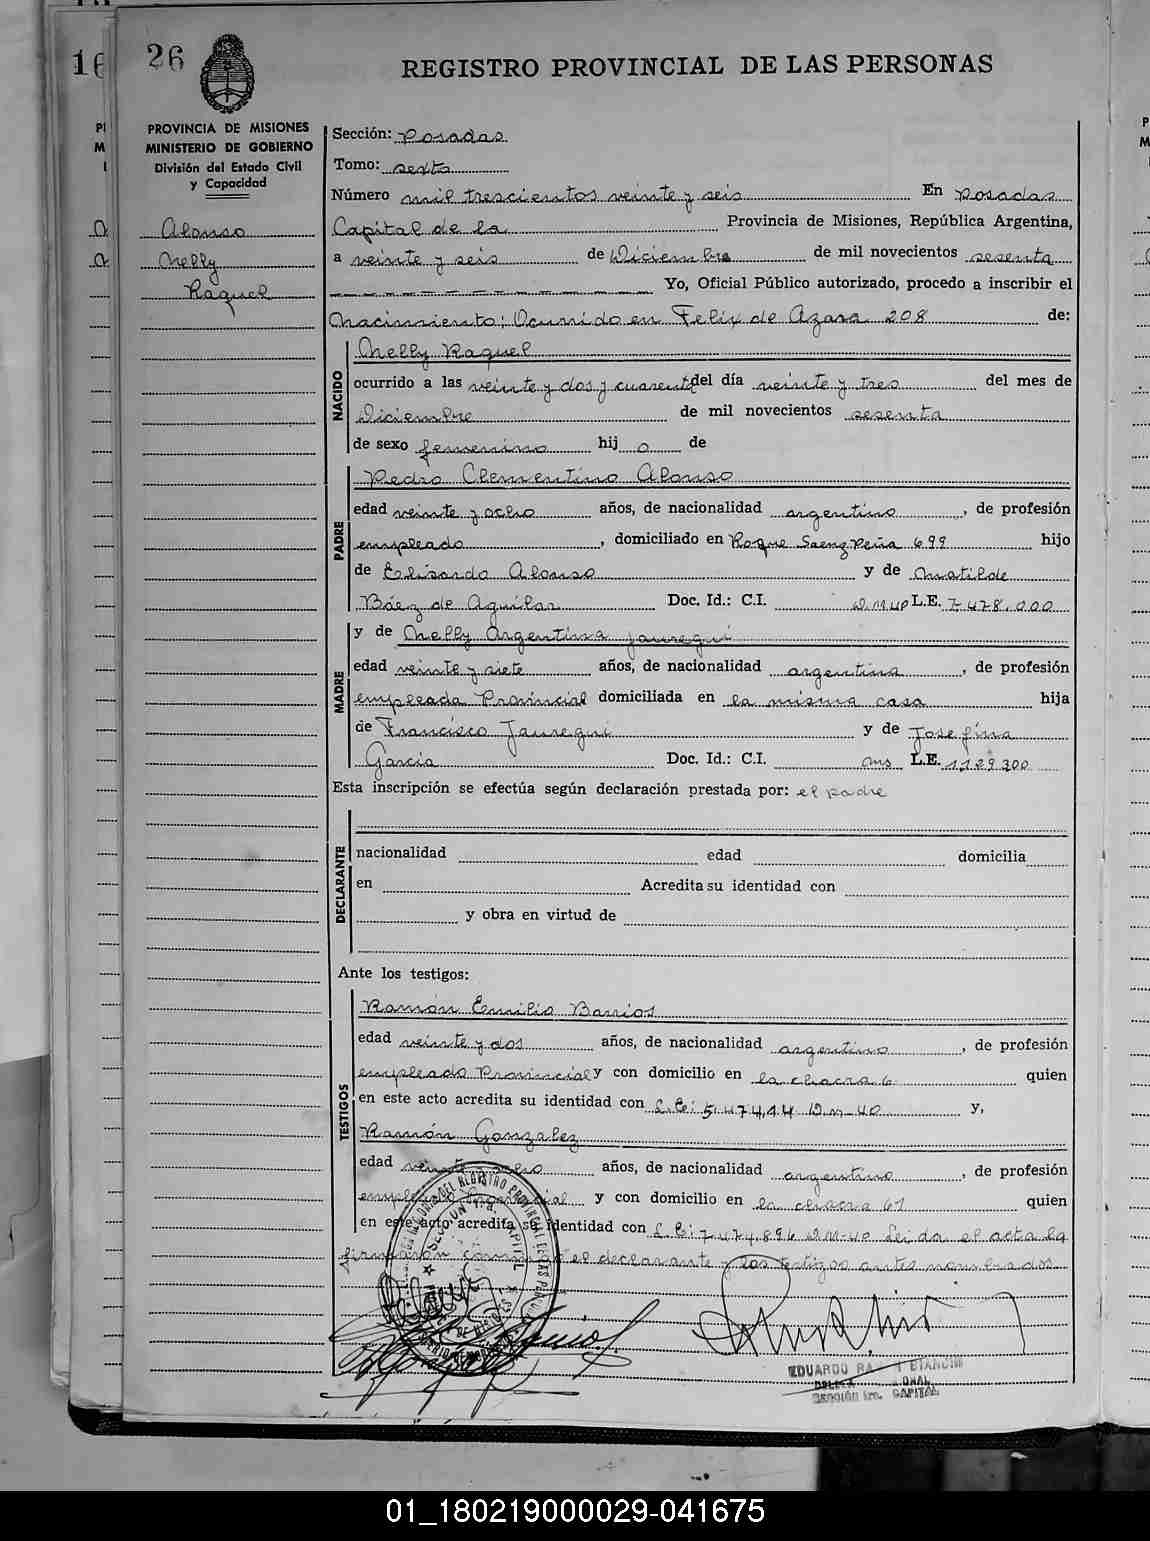 26
REGISTRO PROVINCIAL DE LAS PERSONAS
PROVINCIA DE MISIONES
MINISTERIO DE GOBIERNO
División del Estado Civil
y Capacidad
Alonso
Nelly
Raquel
Sección: Posadas
Tomo: sexto
Número mil trescientos veinte y seis En Posadas
Capital de la Provincia de Misiones, República Argentina,
a veinte y seis de Diciembre de mil novecientos sesenta
Yo, Oficial Público autorizado, procedo a inscribir el
Nacimiento; Ocurrido en Felix de Azara 208 de:
NACIDO
Nelly Raquel
ocurrido a las veinte y dos y cuarenta del día veinte y tres del mes de
Diciembre de mil novecientos sesenta
de sexo femenino hij a de
PADRE
Pedro Clementino Alonso
edad veinte y ocho años, de nacionalidad argentino, de profesión
empleado, domiciliado en Roque Saenz Peña 699 hijo
de Elisardo Alonso y de Matilde
Báez de Aguilar Doc. Id.: C.I. D.M.40 L.E. 7.478.000
MADRE
y de Nelly Argentina Jauregui
edad veinte y siete años, de nacionalidad argentina, de profesión
empleada Provincial domiciliada en la misma casa hija
de Francisco Jauregui y de Josefina
Garcia Doc. Id.: C.I. L.E. 1.109.300
Esta inscripción se efectúa según declaración prestada por: el padre
DECLARANTE
nacionalidad edad domicilia
en Acredita su identidad con
y obra en virtud de
Ante los testigos:
TESTIGOS
Ramón Emilio Barrios
edad veinte y dos años, de nacionalidad argentino, de profesión
empleado Provincial y con domicilio en la chacra 6 quien
en este acto acredita su identidad con L.E: 5.474.14 D.M-40 y,
Ramón Gonzalez
edad veinte y ocho años, de nacionalidad argentino, de profesión
empleado Provincial y con domicilio en la chacra 67 quien
en este acto acredita su identidad con L.E: 7.474.896 D.M-40 Leida el acta la
firmarón conmigo el declarante y los testigos antes nombrados
EDUARDO
SECCIÓN 1ra. CAPITAL
01_180219000029-041675